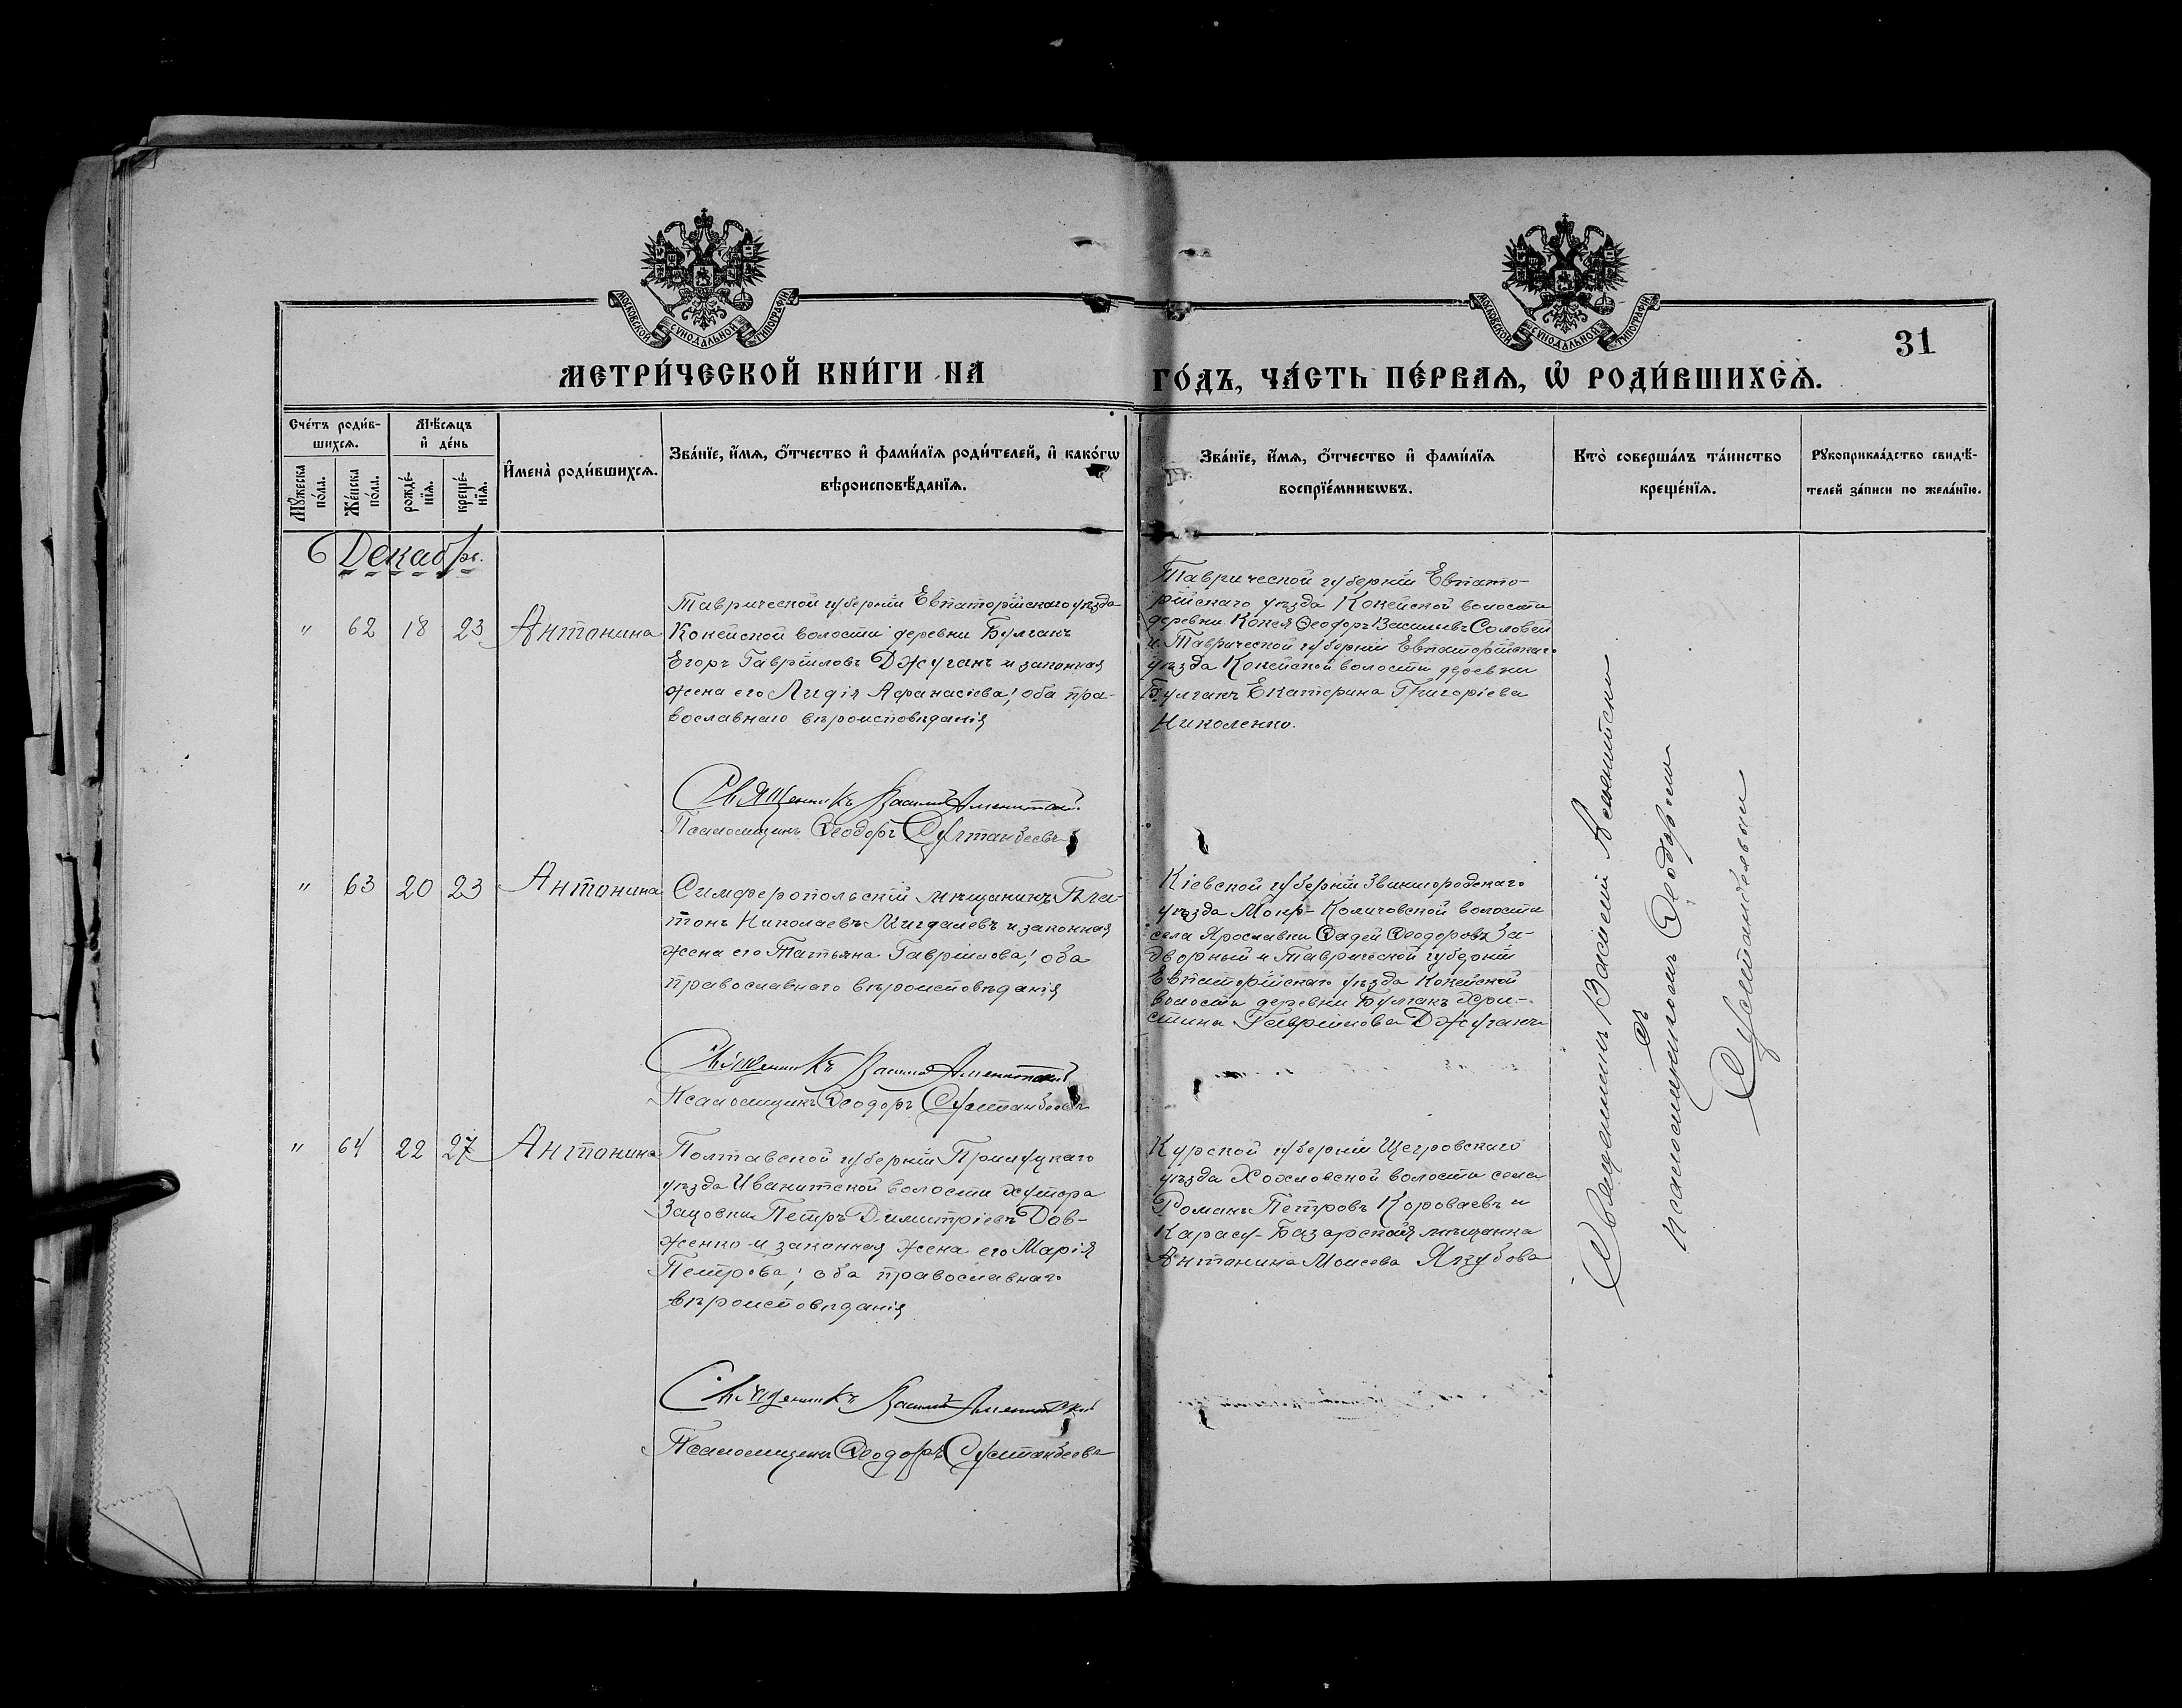 МОСКОВСКОЙ СѴНОДАЛЬНОЙ ТИПОГРАФІИ
МОСКОВСКОЙ СѴНОДАЛЬНОЙ ТИПОГРАФІИ
31
МЕТРИ́ЧЕСКОЙ КНИ́ГИ НА
ГО́ДЪ, ЧА́СТЬ ПЕ́РВАѦ, Ѡ҆ РОДИ́ВШИХСѦ.
Сче́тъ роди́в-
шихсѧ.
Мꙋ́жеска по́ла.
Же́нска по́ла.
Мѣ́сѧцъ
и҆ де́нь
рожде́-нїѧ.
креще́-нїѧ.
И҆мена̀ роди́вшихсѧ.
Зва́нїе, и҆́мѧ, ѻ҆́тчество и҆ фами́лїѧ роди́телей, и҆ како́гѡ
вѣроисповѣ́данїѧ.
Зва́нїе, и҆́мѧ, ѻ҆́тчество и҆ фами́лїѧ
воспрїе́мникѡвъ.
Кто̀ соверша́лъ та́инство
креще́нїѧ.
Рꙋкоприкла́дство свидѣ́-
телей за́писи по жела́нїю.
Декабрь.
" 62 18 23 Антонина
Таврической губерніи Евпаторійскаго уѣзда
Конейской волости деревни Булганъ
Егоръ Гавріиловъ Джуганъ и законная
жена его Лидія Афанасіева; оба пра-
вославнаго вѣроисповѣданія
Священникъ Василій Аменитскій
Псаломщикъ Ѳеодоръ Султанбеевъ
Таврической губерніи Евпато-
рійскаго уѣзда Конейской волости
деревни Конея Ѳеодоръ Васильевъ Соловей
и Таврической губерніи Евпаторійскаго
уѣзда Конейской волости деревни
Булганъ Екатерина Григоріева
Николенко.
" 63 20 23 Антонина
Симферопольскій мѣщанинъ Пла-
тонъ Николаевъ Мигдалевъ и законная
жена его Татьяна Гавріилова; оба
православнаго вѣроисповѣданія
Священникъ Василій Аменитскій
Псаломщикъ Ѳеодоръ Султанбеевъ
Кіевской губерніи Звинигородскаго
уѣзда Мокр-Калигорской волости
села Ярославки Ѳадей Ѳеодоровъ За-
дворный и Таврической губерніи
Евпаторійскаго уѣзда Конейской
волости деревни Булганъ Хри-
стина Гавріилова Джуганъ
" 64 22 27 Антонина
Полтавской губерніи Прилуцкаго
уѣзда Иваницкой волости хутора
Петръ Димитріевъ Дов-
женко и законная жена его Марія
Петрова; оба православнаго
вѣроисповѣданія
Священникъ Василій Аменитскій
Псаломщикъ Ѳеодоръ Султанбеевъ
Курской губерніи Щегровскаго
уѣзда Хохловской волости села
Романъ Петровъ Короваевъ и
Карасу-Базарская мѣщанка
Антонина Моисеева Якубова
Священникъ Василій Аменитскій
съ
псаломщикомъ Ѳеодоромъ
Султанбеевымъ